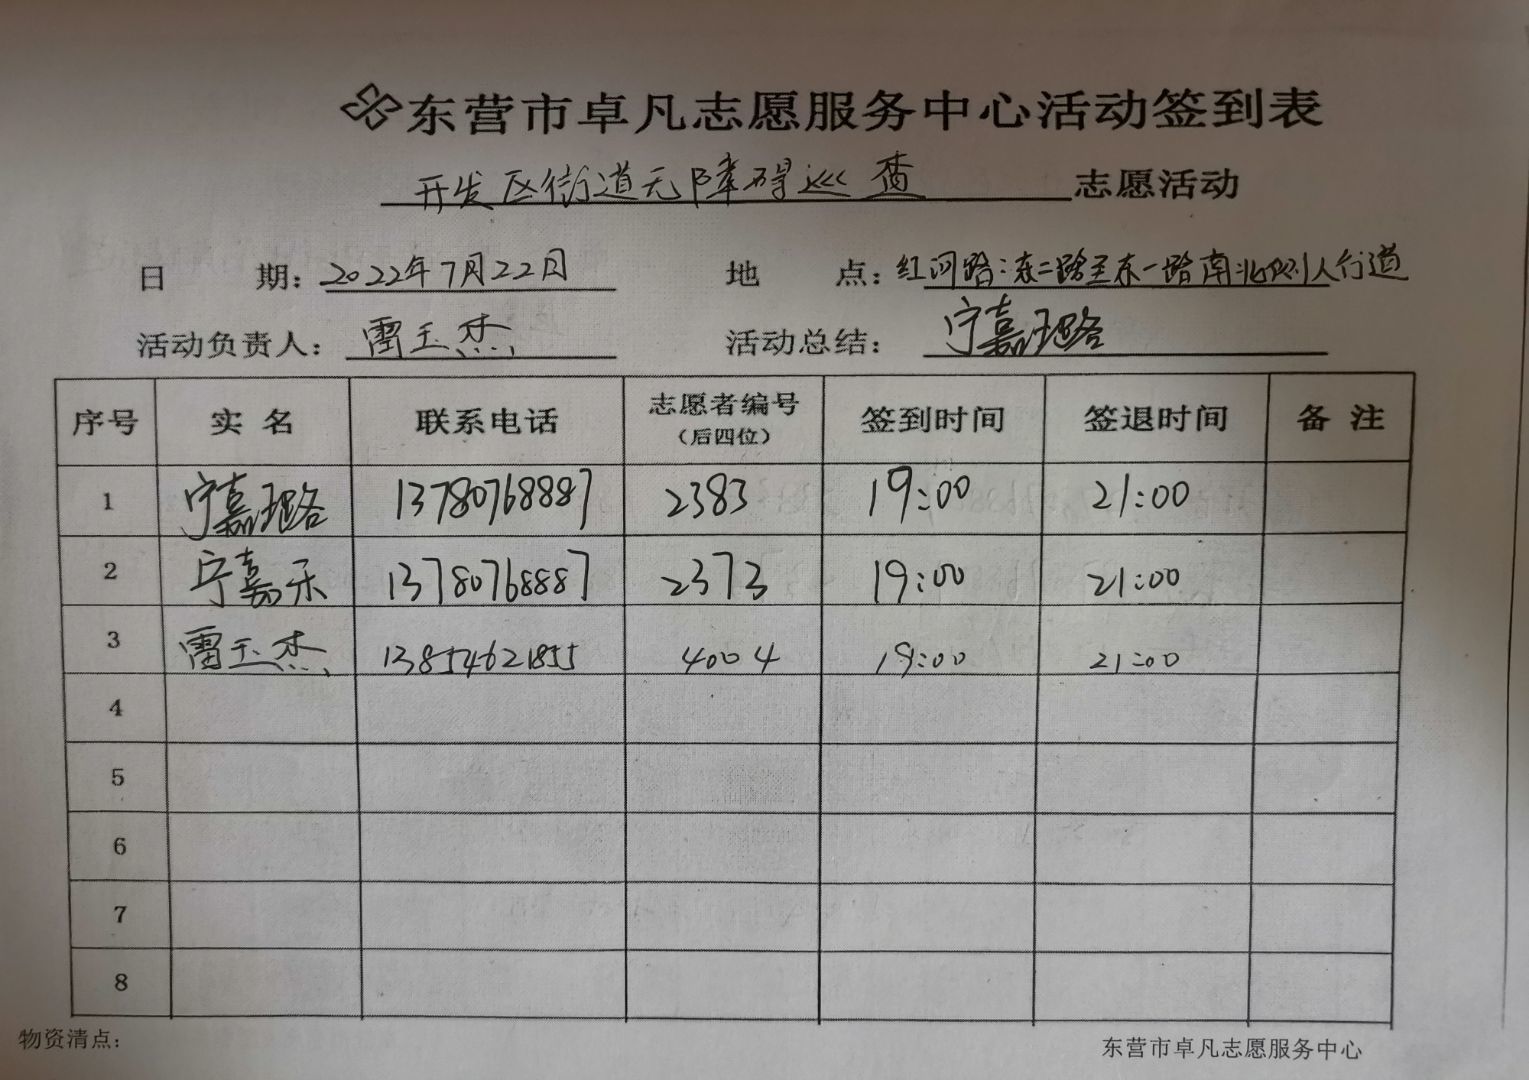 东营市卓凡志愿服务中心活动签到表
开发区街道无障碍巡查 志愿活动
日 期：2022年7月22日 地 点：红河路：东二路至东一路南北侧人行道
活动负责人：雷玉杰 活动总结：宁嘉璐
序号 实名 联系电话 志愿者编号（后四位） 签到时间 签退时间 备注
1 宁嘉璐 13780768887 2383 19:00 21:00
2 宁嘉乐 13780768887 2373 19:00 21:00
3 雷玉杰 13854621855 4004 19:00 21:00
4
5
6
7
8
物资清点： 东营市卓凡志愿服务中心